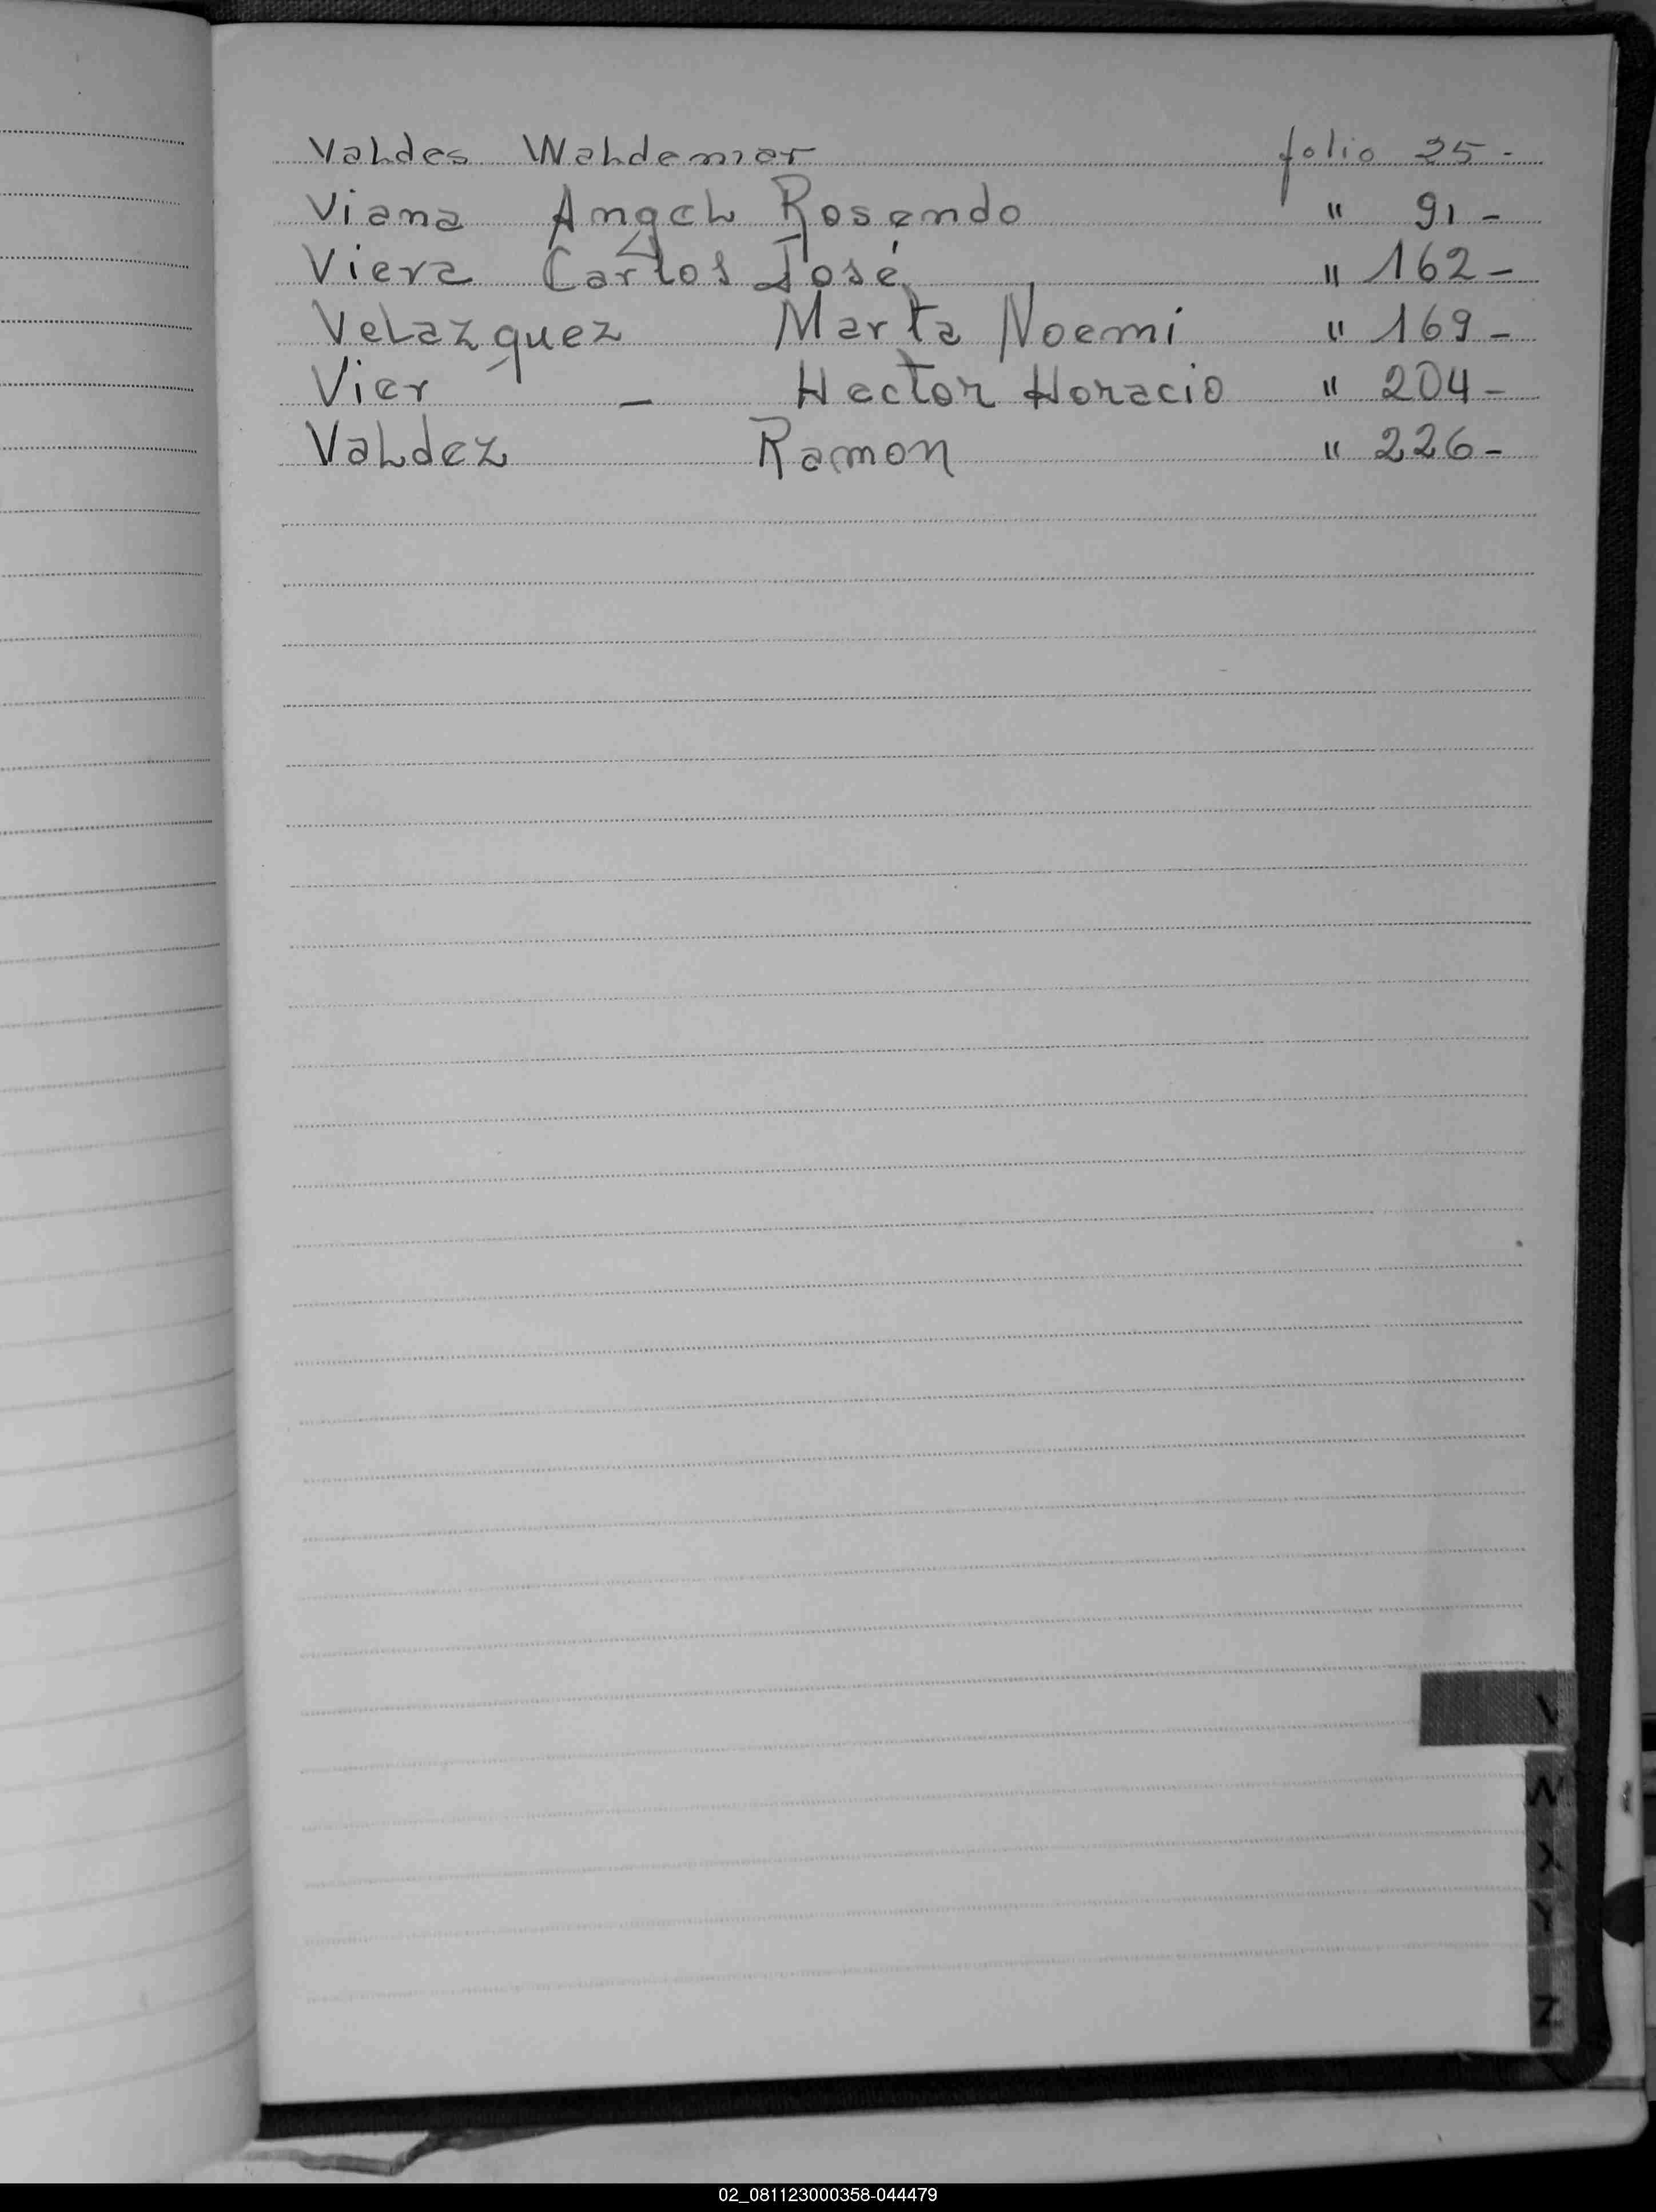 Valdes Waldemar folio 25-
Viana Angel Rosendo " 91-
Viera Carlos José " 162-
Velazquez Marta Noemi " 169-
Vier - Hector Horacio " 204-
Valdez Ramon " 226-
V
W
X
Y
Z
02_081123000358-044479